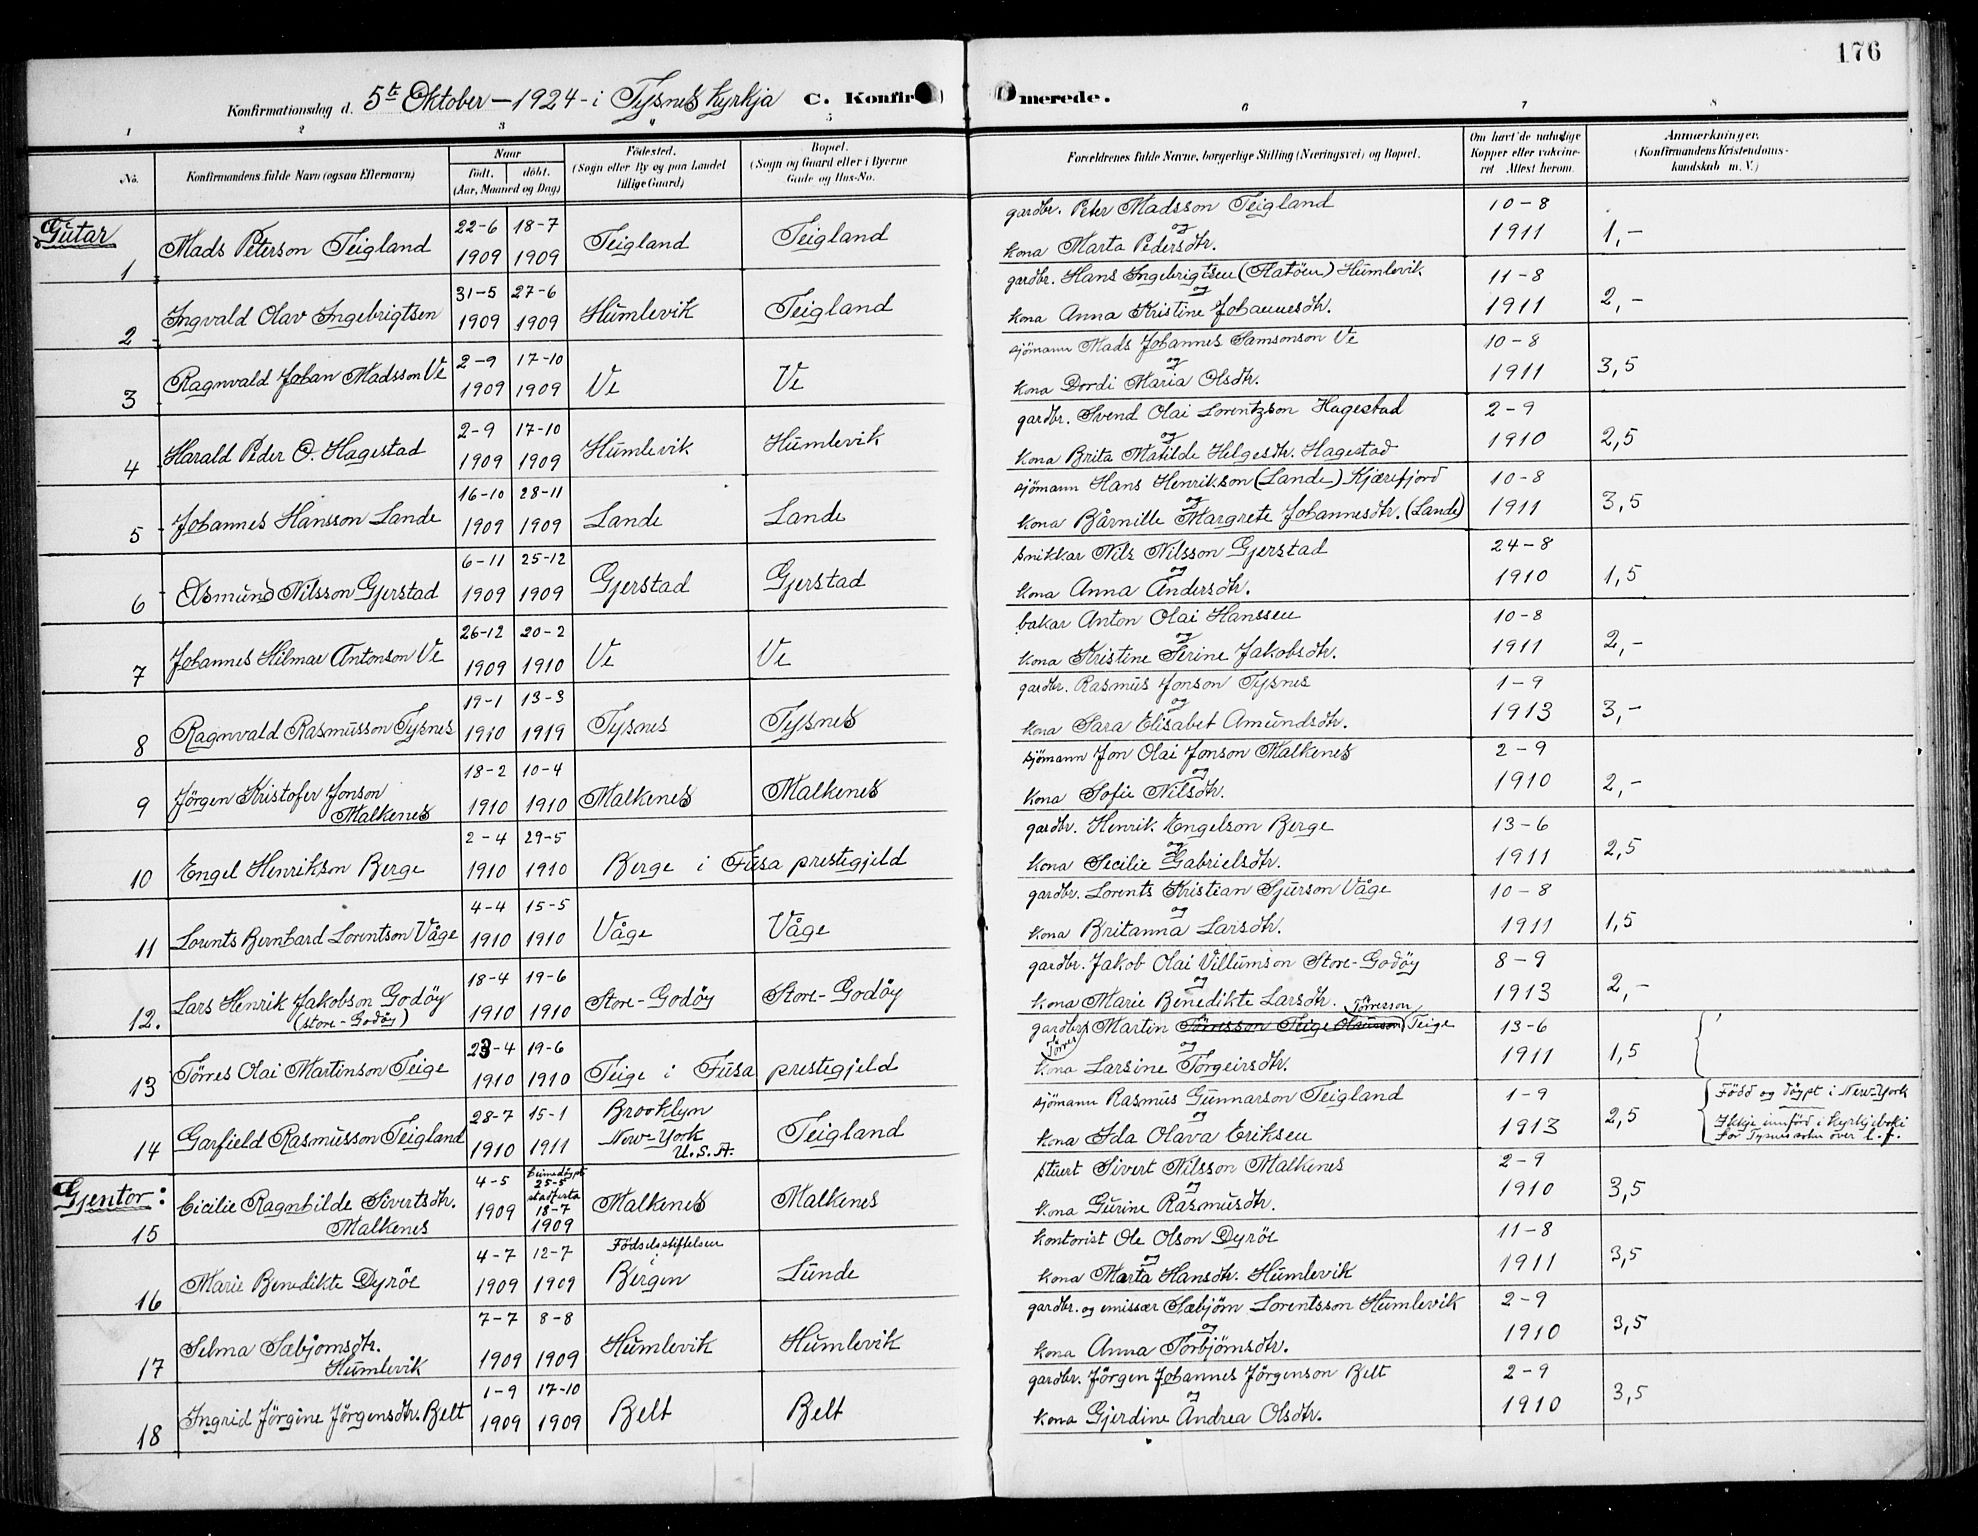 176
Konfirmationsdag d. 5te Oktober – 1924 – i Tysnes kyrkja C. Konfir merede.
1 2 3 4 5 6 7 8
No.
Konfirmandens fulde Navn (ogsaa Efternavn)
Naar
født. døbt.
(Aar, Maaned og Dag)
Fødested.
(Sogn eller By og paa Landet
tillige Gaard)
Bopæl.
(Sogn og Gaard eller i Byerne
Gade og Hus-No.
Forældrenes fulde Navne, borgerlige Stilling (Næringsvei) og Bopæl.
Om havt de naturlige
Kopper eller vakcine-
ret Attest herom.
Anmærkninger.
(Konfirmandens Kristendoms-
kundskab m. V.)
Gutar
1 Mads Peterson Teigland 22-6 1909 18-7 1909 Teigland Teigland gardbr. Peter Madsson Teigland
og
kona Marta Pedersdtr. 10-8 1911 1,-
2 Ingvald Olav Ingebrigtsen 31-5 1909 27-6 1909 Humlevik Teigland gardbr. Hans Ingebrigtsen (Flatøen) Humlevik
og
kona Anna Kristine Johannesdtr. 11-8 1911 2,-
3 Ragnvald Johan Madsson Ve 2-9 1909 17-10 1909 Ve Ve sjömann Mads Johannes Samsonson Ve
og
kona Dordi Maria Olsdtr. 10-8 1911 3,5
4 Harald Peder O. Hagestad 2-9 1909 17-10 1909 Humlevik Humlevik gardbr. Svend Olai Lorentzson Hagestad
og
kona Brita Matilde Helgesdtr. Hagestad 2-9 1910 2,5
5 Johannes Hansson Lande 16-10 1909 28-11 1909 Lande Lande sjömann Hans Henrikson (Lande) Kjærefjord
og
kona Bårnille Margrete Johannesdtr. (Lande) 10-8 1911 3,5
6 Asmund Nilsson Gjerstad 6-11 1909 25-12 1909 Gjerstad Gjerstad snikkar Nils Nilsson Gjerstad
og
kona Anna Andersdtr. 24-8 1910 1,5
7 Johannes Hilmar Antonson Ve 26-12 1909 20-2 1910 Ve Ve bakar Anton Olai Hanssen
og
kona Kristine Serine Jakobsdtr. 10-8 1911 2,-
8 Ragnvald Rasmusson Tysnes 19-1 1910 13-3 1919 Tysnes Tysnes gardbr. Rasmus Jonson Tysnes
og
kona Sara Elisabet Amundsdtr. 1-9 1913 3,-
9 Jörgen Kristofer Jonson
Malkenes 18-2 1910 10-4 1910 Malkenes Malkenes sjömann Jon Olai Jonson Malkenes
og
kona Sofie Nilsdtr. 2-9 1910 2,-
10 Engel Henrikson Berge 2-4 1910 29-5 1910 Berge i Fusa prestegjeld gardbr. Henrik Engelson Berge
og
kona Secilie Gabrielsdtr. 13-6 1911 2,5
11 Lorents Bernhard Lorentson Våge 4-4 1910 15-5 1910 Våge Våge gardbr. Lorents Kristian Sjurson Våge
og
kona Britanna Larsdtr. 10-8 1911 1,5
12. Lars Henrik Jakobson Godöy
(store-Godöy) 18-4 1910 19-6 1910 Store-Godöy Store-Godöy gardbr. Jakob Olai Villumson Store-Godöy
og
kona Marie Benedikte Larsdtr. 8-9 1913 2,-
13 Törres Olai Martinson Teige 23-4 1910 19-6 1910 Teige i Fusa prestegjeld gardbr. Martin Törresson Teige Törresson Teige
Törres og
kona Larsine Torgeirsdtr. 13-6 1911 1,5
14 Garfield Rasmusson Teigland 28-7 1910 15-1 1911 Brooklyn
New-York
U.S.A. Teigland sjömann Rasmus Gunnarson Teigland
og
kona Ida Olava Eriksen 1-9 1913 2,5 Född og döypt i New-York
Ikkje innförd i kyrkjeboki
for Tysnes sokn över l. f.
Gjentor:
15 Cicilie Ragnhilde Sivertsdtr.
Malkenes 4-5 1909 heimedöypt
25-5
stadfesta
18-7
1909 Malkenes Malkenes stuert Sivert Nilsson Malkenes
og
kona Gurine Rasmusdtr. 2-9 1910 3,5
16 Marie Benedikte Dyröe 4-7 1909 12-7 1909 Födselsstiftelsen
i
Bergen Lunde kontorist Ole Olson Dyröe
og
kona Marta Hansdtr. Humlevik 11-8 1911 3,5
17 Selma Sæbjörnsdtr.
Humlevik 7-7 1909 8-8 1909 Humlevik Humlevik gardbr. og emissær Sæbjörn Lorentsson Humlevik
og
kona Anna Torbjörnsdtr. 2-9 1910 3,5
18 Ingrid Jörgine Jörgensdtr. Belt 1-9 1909 17-10 1909 Belt Belt gardbr. Jörgen Johannes Jörgenson Belt
og
kona Gjerdine Andrea Olsdtr. 2-9 1910 3,5